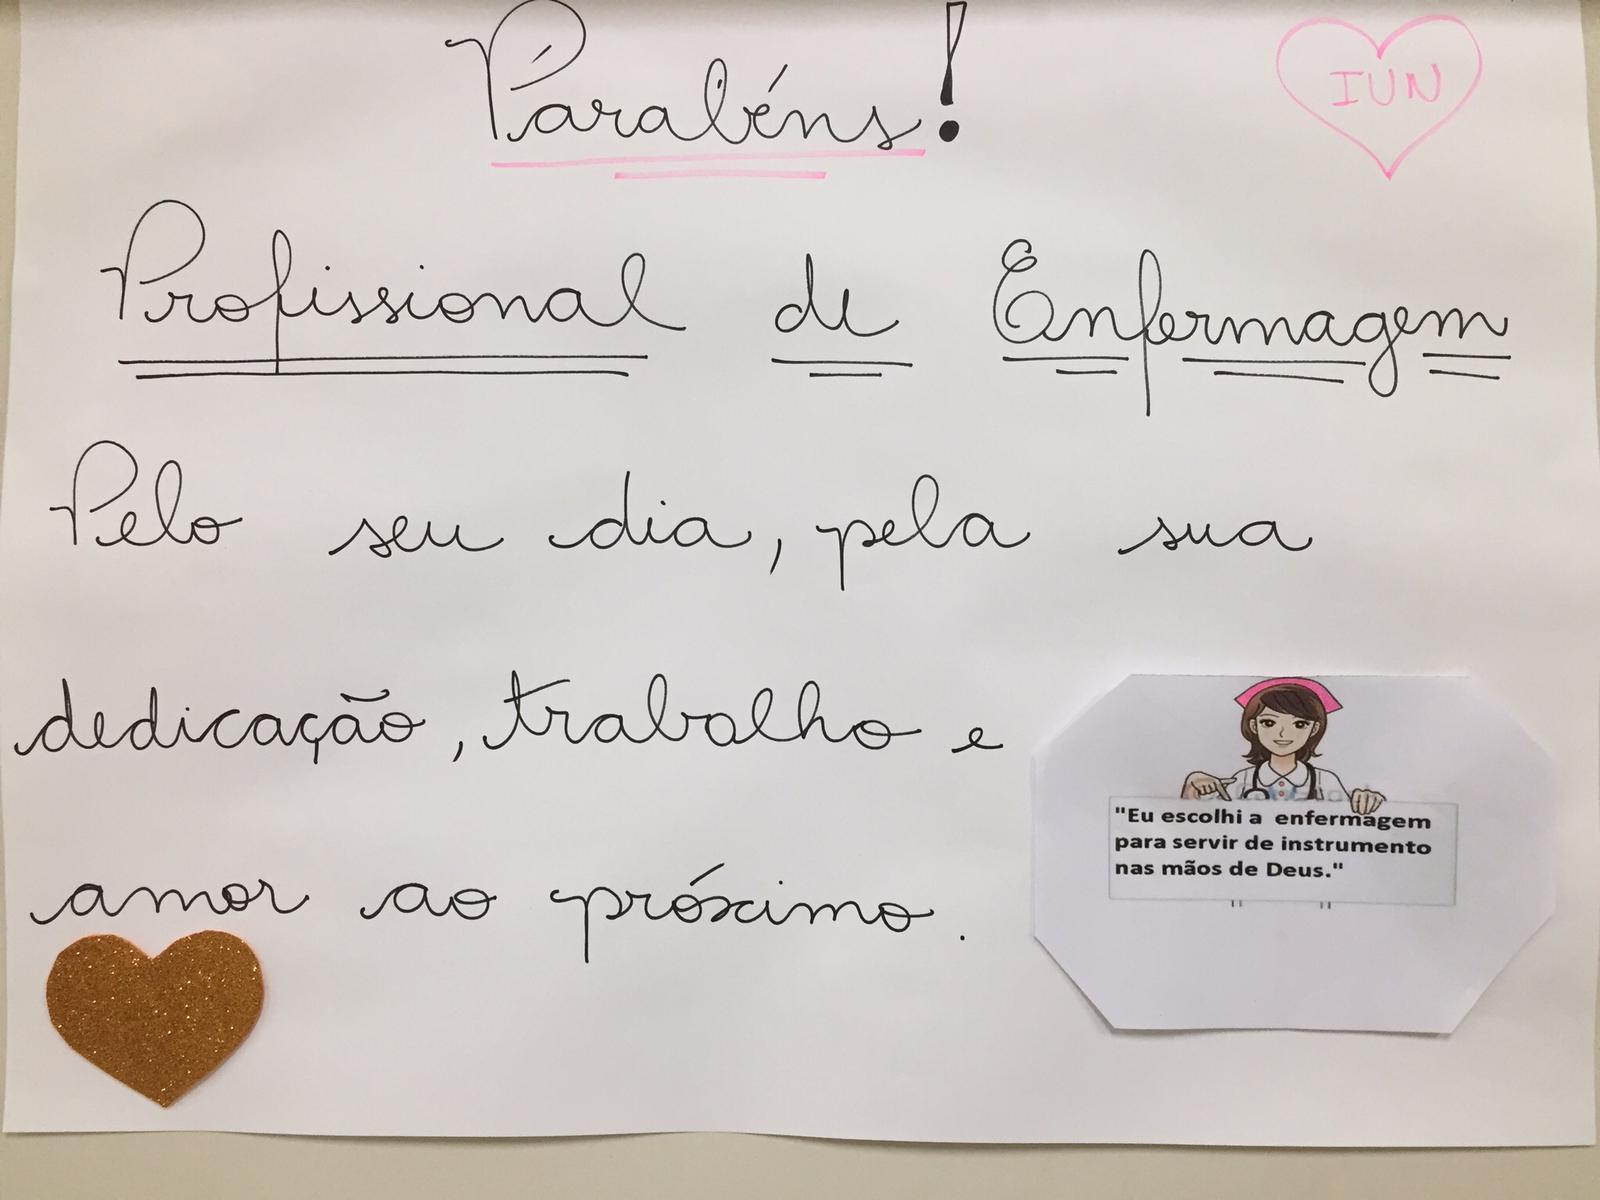 Parabéns!
IUN
Profissional de Enfermagem
Pelo seu dia, pela sua
dedicação, trabalho e
amor ao próximo.
"Eu escolhi a enfermagem
para servir de instrumento
nas mãos de Deus."